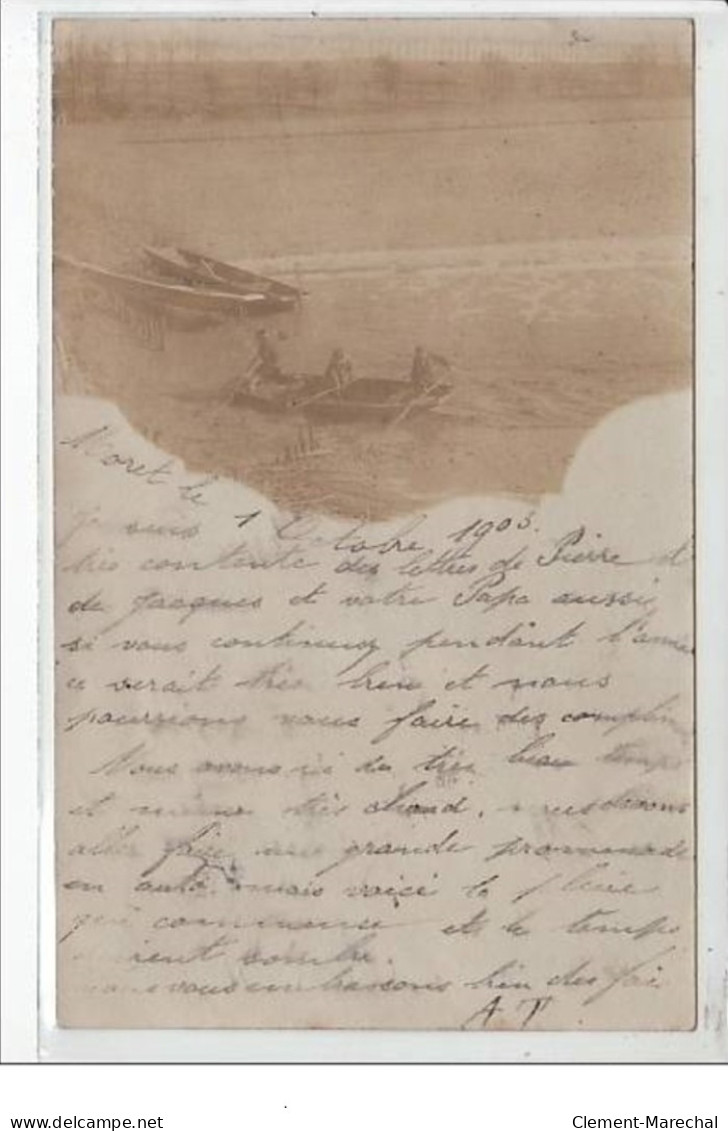 Moret le
1 Octobre 1903.
Je suis
très contente des lettres de Pierre
de Jacques et votre Papa aussi
si vous continuez pendant l'année
ce serait très bien et nous
pourrions vous faire des complim
Nous avons ici du très beau temps
et même très chaud, nous devions
aller faire une grande promenade
en auto mais voici la pluie
qui commence et le temps
devient sombre.
nous vous embrassons bien des foi
A T
delcampe.net
Clement-Marechal